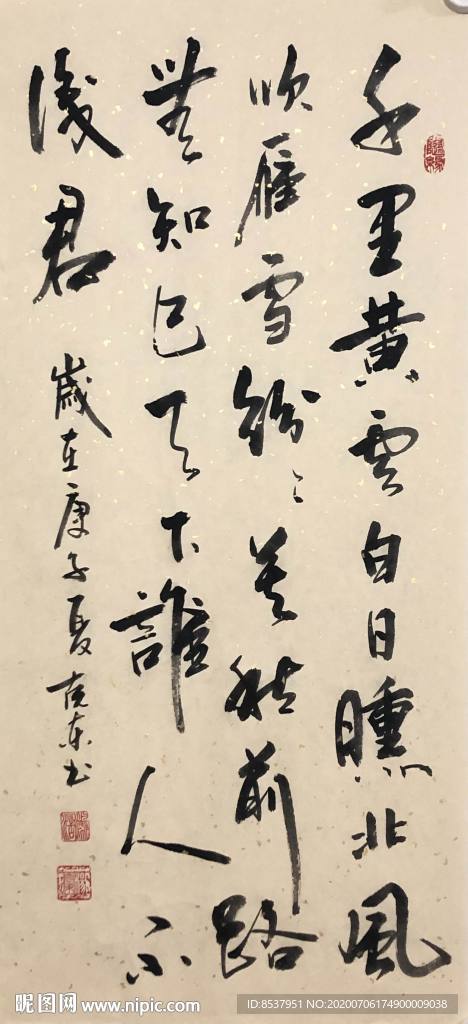 千里黄雲白日曛北風
吹雁雪紛〻莫愁前路
無知己天下誰人不
識君
歲在庚子夏 克东书
昵图网 www.nipic.com
ID:8537951 NO:20200706174900009038